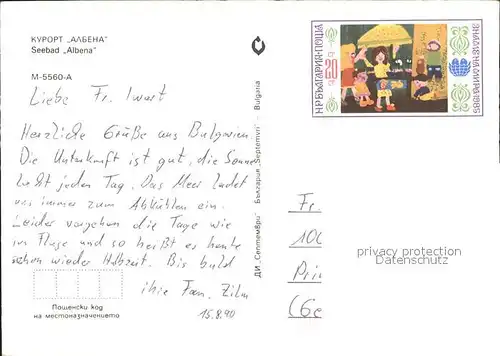 КУРОРТ „АЛБЕНА"
Seebad „Albena"
М-5560-А
Liebe Fr. Iwart
Herzliche Grüße aus Bulgarien.
Die Unterkunft ist gut, die Sonne
lacht jeden Tag. Das Meer ladet
uns immer zum Abkühlen ein.
Leider vergehen die Tage wie
im Fluge und so heißt es heute
schon wieder Halbzeit. Bis bald
ihre Fam. Zilm
15.8.90
Пощенски код
на местоназначението
ДИ „Септември" България „Septemvri" - Bulgaria
НР БЪЛГАРИЯ·ПОЩА
20
Fr.
100
Prin
(6e
privacy protection
Datenschutz